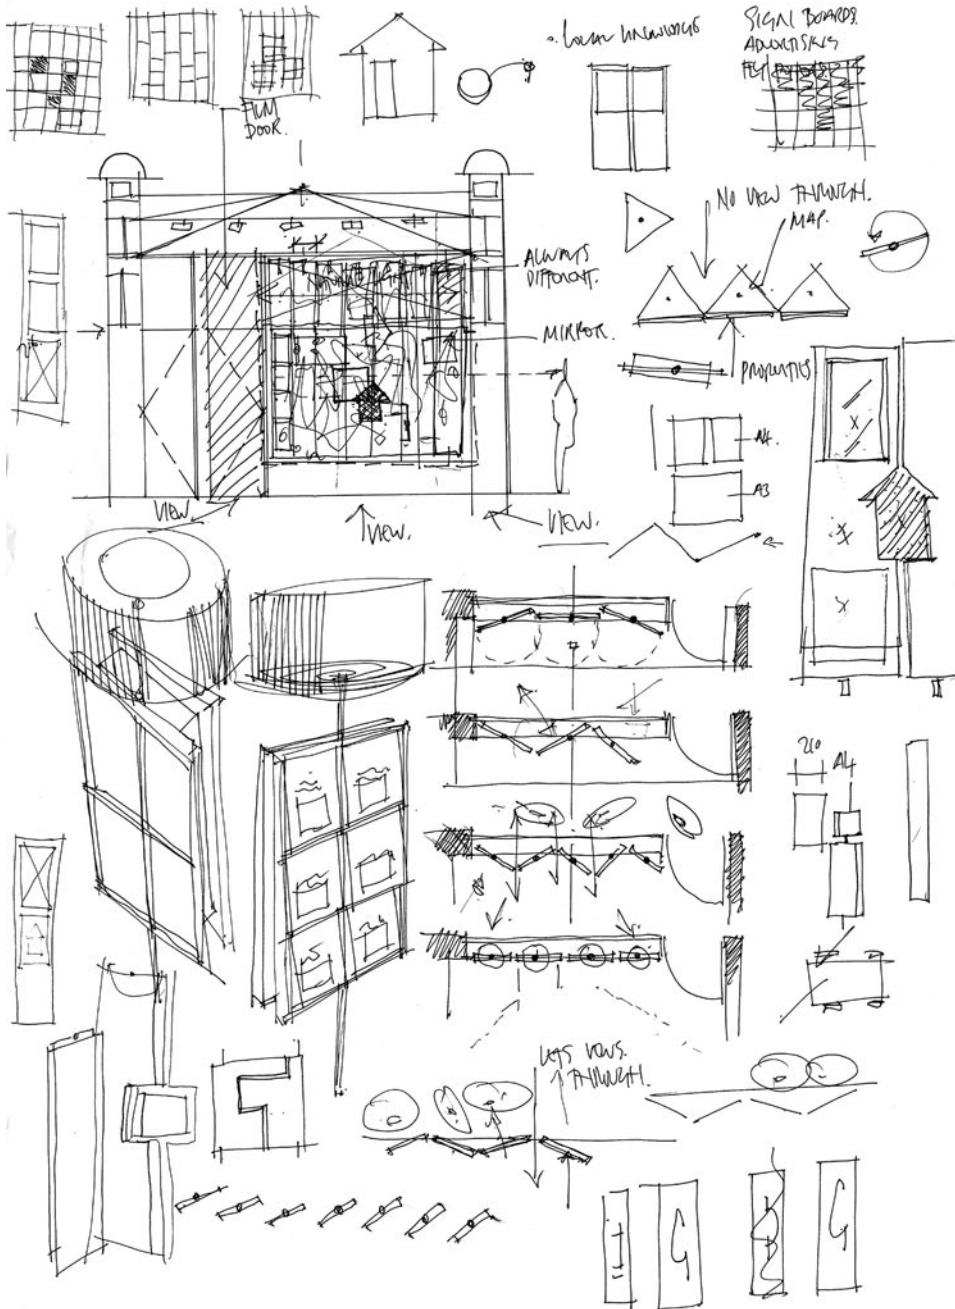 LOCAL KNOWLEDGE
SIGN BOARDS.
ADVERTISING
FLY POSTERS.
DOOR.
NO VIEW THROUGH.
MAP.
ALWAYS
DIFFERENT.
MIRROR.
PROPERTIES
A4.
A3
VIEW.
VIEW.
VIEW.
210
A4
LETS VIEWS
THROUGH.
G
G